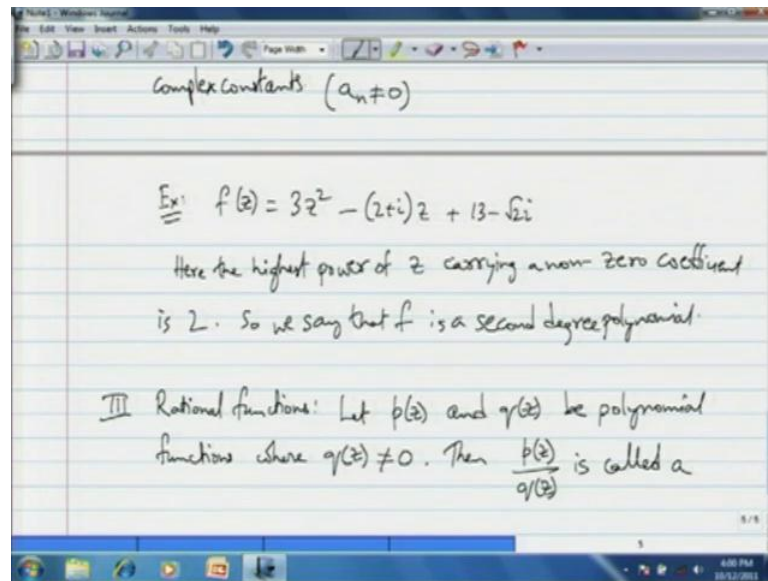 Note1 - Windows Journal
File Edit View Insert Actions Tools Help
Page Width
complex constants (aₙ≠0)
Ex: f(z) = 3z² - (2+i)z + 13-√2i
Here the highest power of z carrying a non-zero coefficient
is 2. So we say that f is a second degree polynomial.
III Rational functions: Let p(z) and q(z) be polynomial
functions where q(z) ≠ 0. Then p(z)/q(z) is called a
5/5
5
4:00 PM
10/12/2011